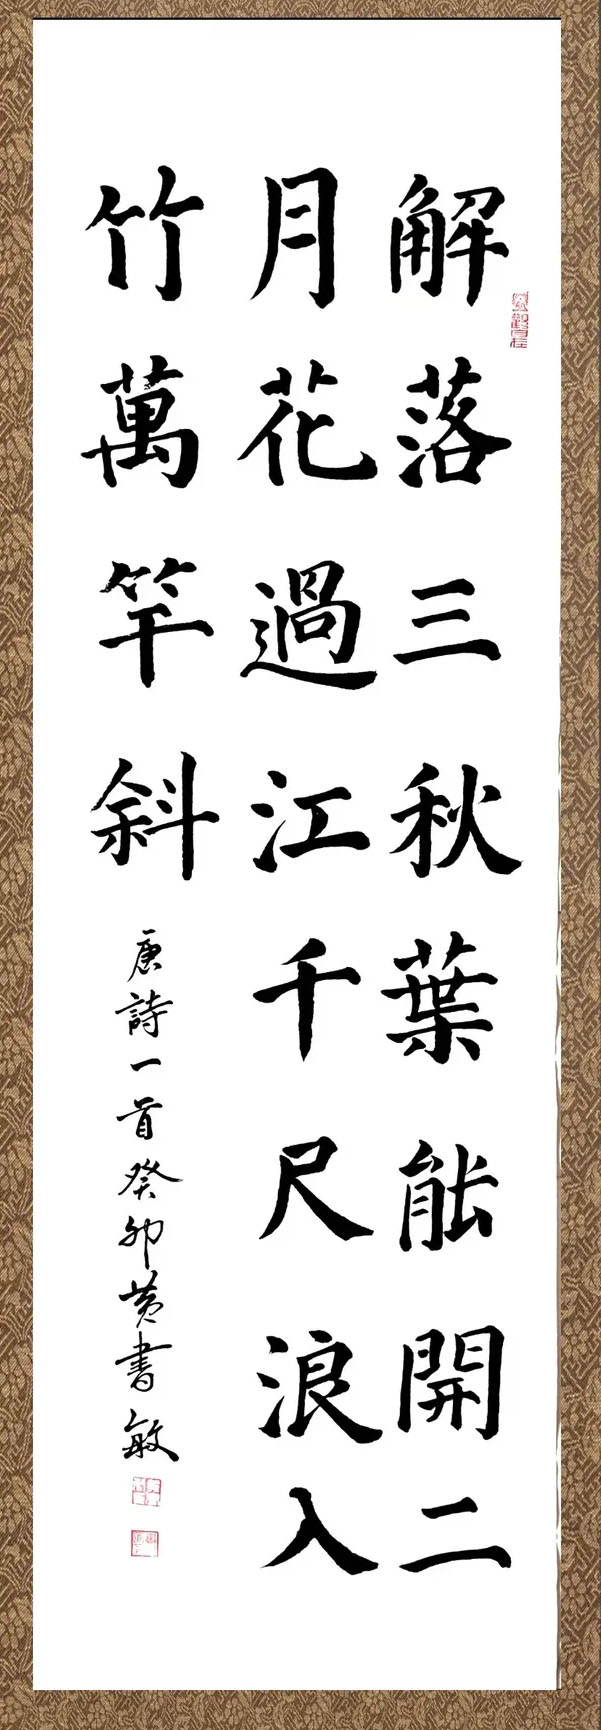 解落三秋葉能開二
月花過江千尺浪入
竹萬竿斜
唐詩一首癸卯黄書敏